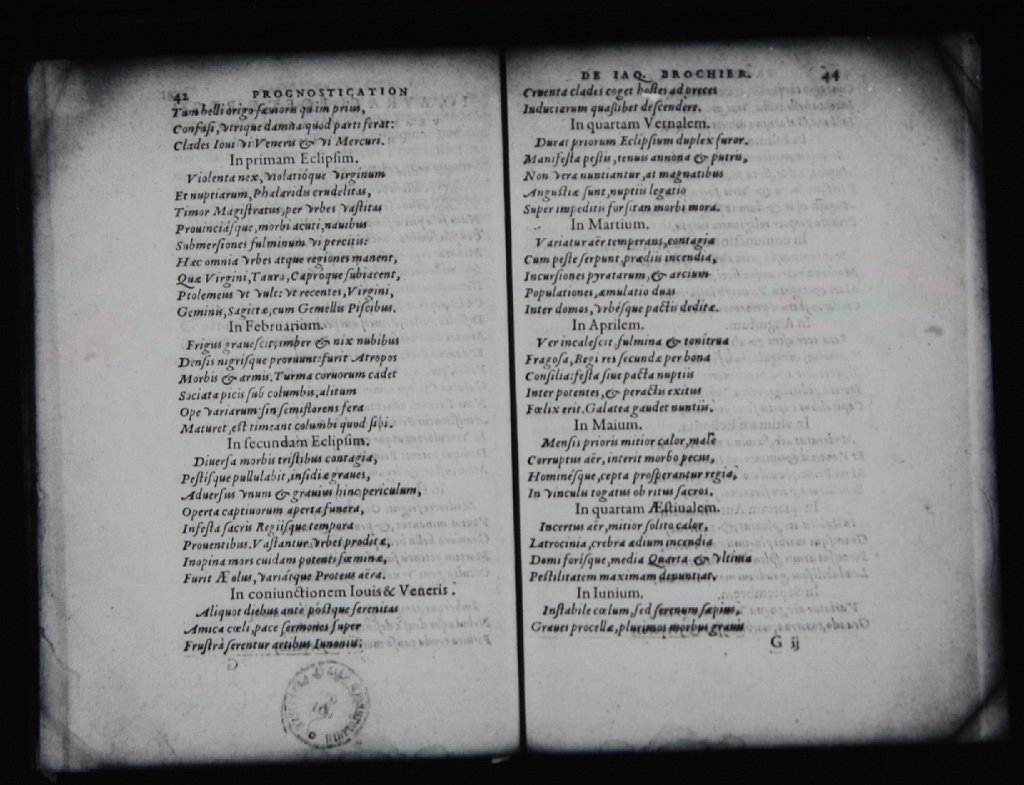 42 PROGNOSTICATION
Tum belli origo sæuioris quàm prius,
Confusi, vtrique damna quod parti ferat:
Clades Ioui vi Veneris & vi Mercuri.
In primam Eclipsim.
Violenta nex, violatióque virginum
Et nuptiarum, Phalaridis crudelitas,
Timor Magistratus, per vrbes vastitas
Prouinciásque, morbi acuti, nauibus
Submersiones fulminum vi percitis:
Hæc omnia vrbes atque regiones manent,
Quæ Virgini, Tauro, Caproque subiacent,
Ptolemeus vt vult: vt recentes, Virgini,
Geminis, Sagittæ, cum Gemellis Piscibus.
In Februarium.
Frigus grauescit; imber & nix nubibus
Densis nigrisque proruunt: furit Atropos
Morbis & armis. Turma coruorum cadet
Sociata picis sub columbis, alitum
Ope variarum: sin semiflorens fera
Maturet, est timeant columbi quod sibi.
In secundam Eclipsim.
Diuersa morbis tristibus contagia,
Pestisque pullulabit, insidiæ graues,
Aduersus vnum & grauius hinc periculum,
Operta captiuorum aperta funera,
Infesta sacris Regiisque tempora
Prouentibus. Vastantur vrbes proditæ,
Inopina mors cuidam potenti fœminæ,
Furit Æolus, variátque Proteus aëra.
In coniunctionem Iouis & Veneris.
Aliquot diebus ante póstque serenitas
Amica cœli, pace sermones super
Frustrà serentur artibus Iunoniis:
G
DE IAQ. BROCHIER. 44
Cruenta clades coget hostes ad preces
Induciarum quaslibet descendere.
In quartam Vernalem.
Durat priorum Eclipsium duplex furor.
Manifesta pestis, tenuis annona & putris,
Non vera nuntiantur, at magnatibus
Angustiæ sunt, nuptiis legatio
Super impeditis forsitan morbi mora.
In Martium.
Variatur aër temperans, contagia
Cum peste serpunt, prædiis incendia,
Incursiones pyratarum, & arcium
Populationes, æmulatio duas
Inter domos, vrbésque pactis deditæ.
In Aprilem.
Ver incalescit, fulmina & tonitrua
Fragosa, Regi res secundæ per bona
Consilia: festa siue pacta nuptiis
Inter potentes, & peractis exitus
Fœlix erit. Galatea gaudet nuntiis.
In Maium.
Mensis prioris mitior calor, malè
Corruptus aër, interit morbo pecus,
Hominésque, cepta prosperantur regia,
In vinculis togatus ob ritus sacros.
In quartam Æstiualem.
Incertus aër, mitior solito calor,
Latrocinia, crebra ædium incendia
Domi forisque, media Quarta & vltima
Pestilitatem maximam denuntiat.
In Iunium.
Instabile cœlum, sed serenum sæpius,
Graues procellæ, plurimos morbus grauis
G ij